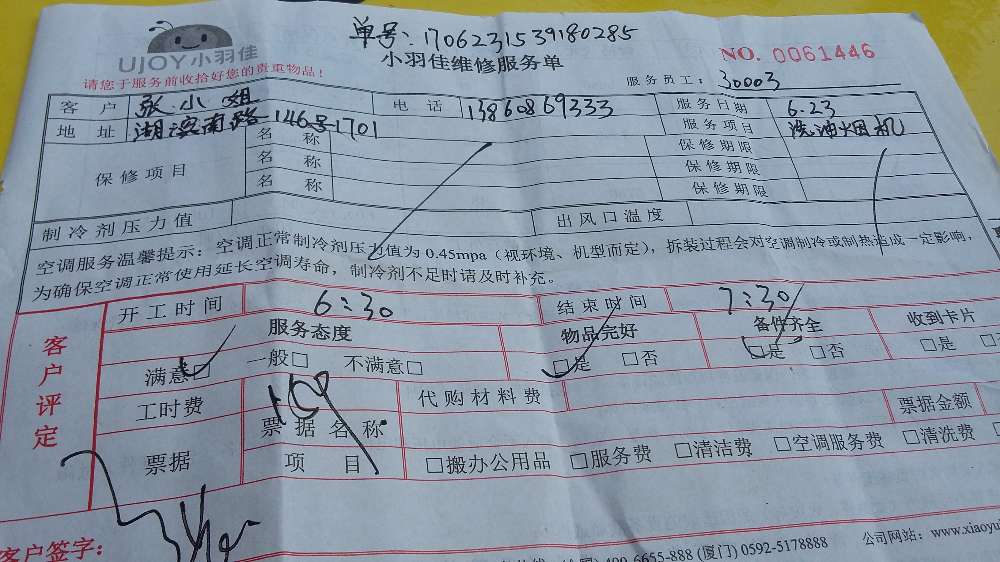 单号:1706231539180285
UJOY小羽佳
小羽佳维修服务单
NO. 0061446
请您于服务前收拾好您的贵重物品!
服务员工: 30003
客户 张小姐 电话 13860869333 服务日期 6.23
地址 湖滨南路146号1701 服务项目 洗油烟机
保修项目 名称 保修期限
名称 保修期限
名称 保修期限
制冷剂压力值 出风口温度
空调服务温馨提示:空调正常制冷剂压力值为0.45mpa(视环境、机型而定),拆装过程会对空调制冷或制热造成一定影响,
为确保空调正常使用延长空调寿命,制冷剂不足时请及时补充。
客户评定
开工时间 6:30 结束时间 7:30
服务态度 物品完好 备件齐全 收到卡片
满意□ 一般□ 不满意□ □是 □否 □是 □否 □是
工时费 代购材料费 票据金额
票据 票据名称
项目 □搬办公用品 □服务费 □清洁费 □空调服务费 □清洗费
客户签字:
6655-888 (厦门) 0592-5178888 公司网站: www.xiaoyu